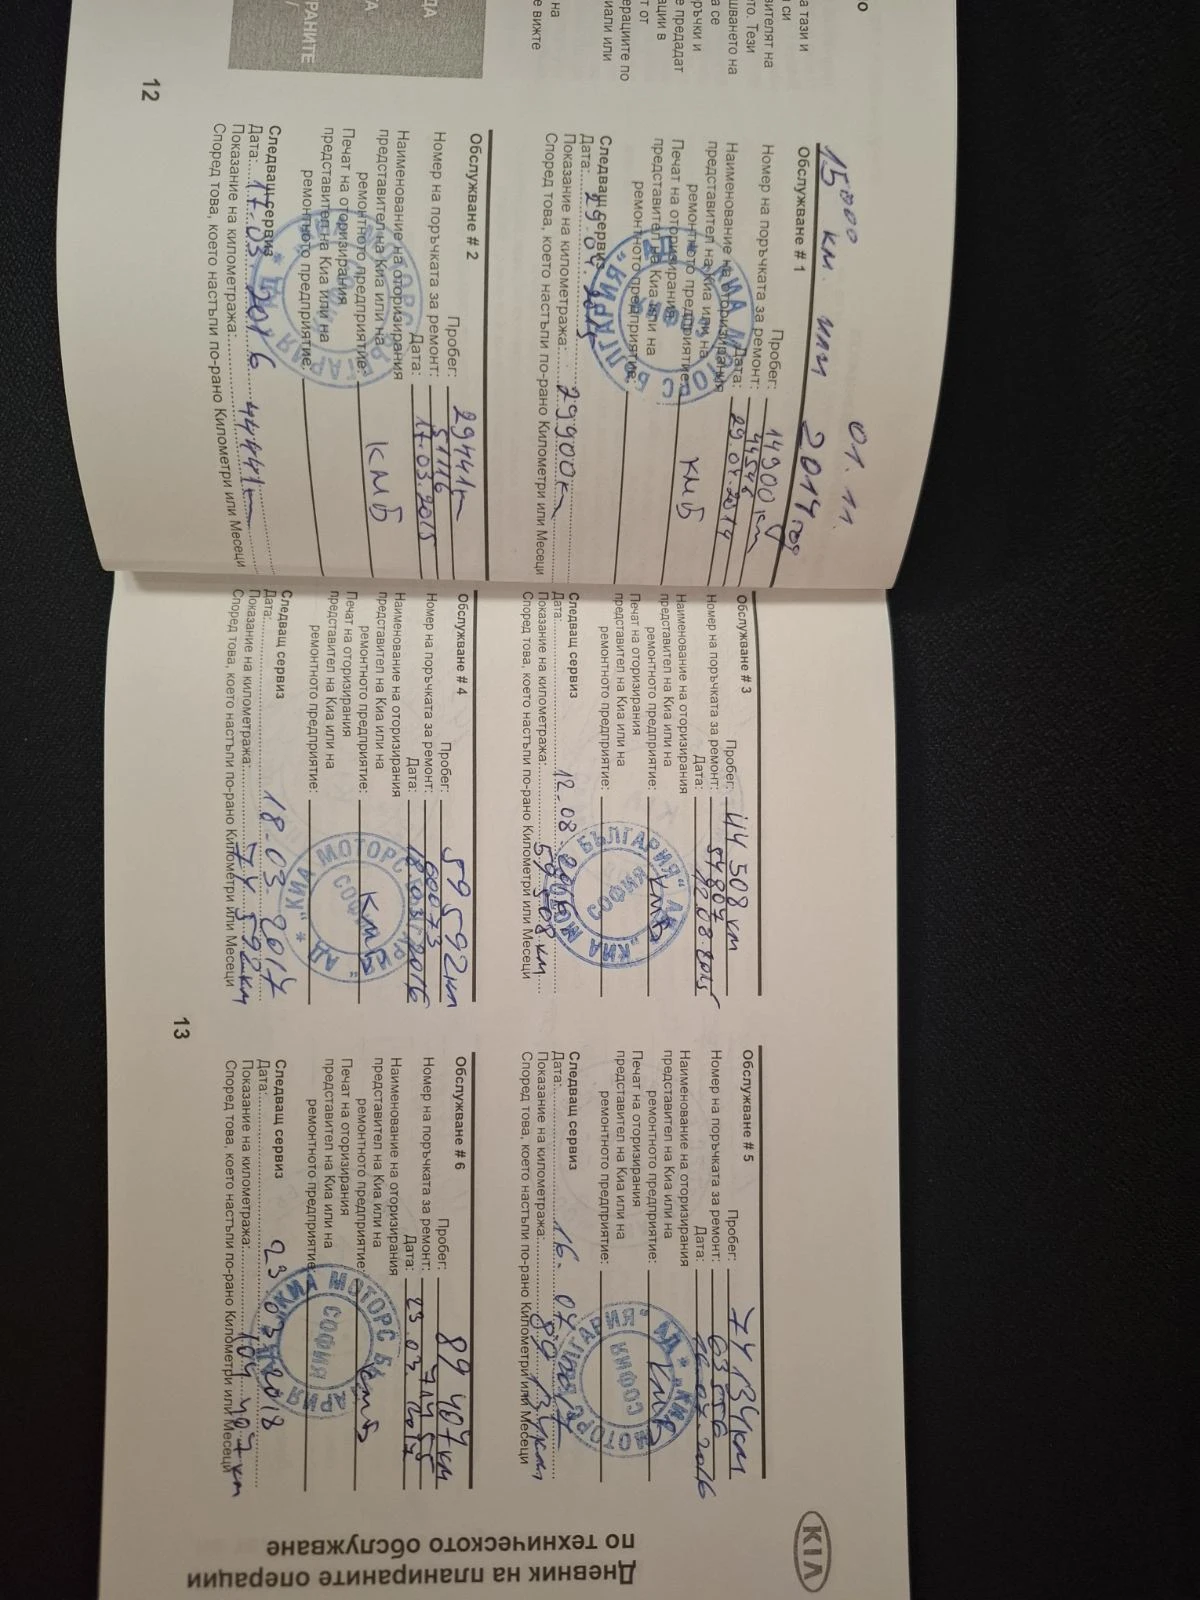 15000 км. или 01.11.
2014 год
Обслужване # 1
Пробег: 14900 км
Номер на поръчката за ремонт: 44546
Дата: 29.04.2014
Наименование на оторизирания
представител на Киа или на
ремонтното предприятие: КМБ
Печат на оторизирания
представител на Киа или на
ремонтното предприятие:
Следващ сервиз
Дата:
Показание на километража: 29900 км
Според това, което настъпи по-рано Километри или Месеци
Обслужване # 2
Пробег: 29441 км
Номер на поръчката за ремонт: 51116
Дата: 17.03.2015
Наименование на оторизирания
представител на Киа или на
ремонтното предприятие: КМБ
Печат на оторизирания
представител на Киа или на
ремонтното предприятие:
Следващ сервиз
Дата: 17.03.2016
Показание на километража: 44441 км
Според това, което настъпи по-рано Километри или Месеци
12
Обслужване # 3
Пробег: 44 508 км
Номер на поръчката за ремонт: 54807
Дата: 12.08.2015
Наименование на оторизирания
представител на Киа или на
ремонтното предприятие: КМБ
Печат на оторизирания
представител на Киа или на
ремонтното предприятие:
"КИА МОТОРС БЪЛГАРИЯ" АД
СОФИЯ
Следващ сервиз
Дата: 12.08.2016
Показание на километража: 59 508 км
Според това, което настъпи по-рано Километри или Месеци
Обслужване # 4
Пробег: 59 592 км
Номер на поръчката за ремонт: 60073
Дата: 18.03.2016
Наименование на оторизирания
представител на Киа или на
ремонтното предприятие: КМБ
Печат на оторизирания
представител на Киа или на
ремонтното предприятие:
Следващ сервиз
Дата: 18.03.2017
Показание на километража: 74 592 км
Според това, което настъпи по-рано Километри или Месеци
13
Обслужване # 5
Пробег: 74 134 км
Номер на поръчката за ремонт: 63556
Дата: 16.07.2016
Наименование на оторизирания
представител на Киа или на
ремонтното предприятие: КМБ
Печат на оторизирания
представител на Киа или на
ремонтното предприятие:
Следващ сервиз
Дата: 16.07.2017
Показание на километража: 89 134 км
Според това, което настъпи по-рано Километри или Месеци
Обслужване # 6
Пробег: 89 407 км
Номер на поръчката за ремонт: 71455
Дата: 23.03.2017
Наименование на оторизирания
представител на Киа или на
ремонтното предприятие: КМБ
Печат на оторизирания
представител на Киа или на
ремонтното предприятие:
Следващ сервиз
Дата: 23.03.2018
Показание на километража: 104 407 км
Според това, което настъпи по-рано Километри или Месеци
KIA
Дневник на планираните операции
по техническото обслужване